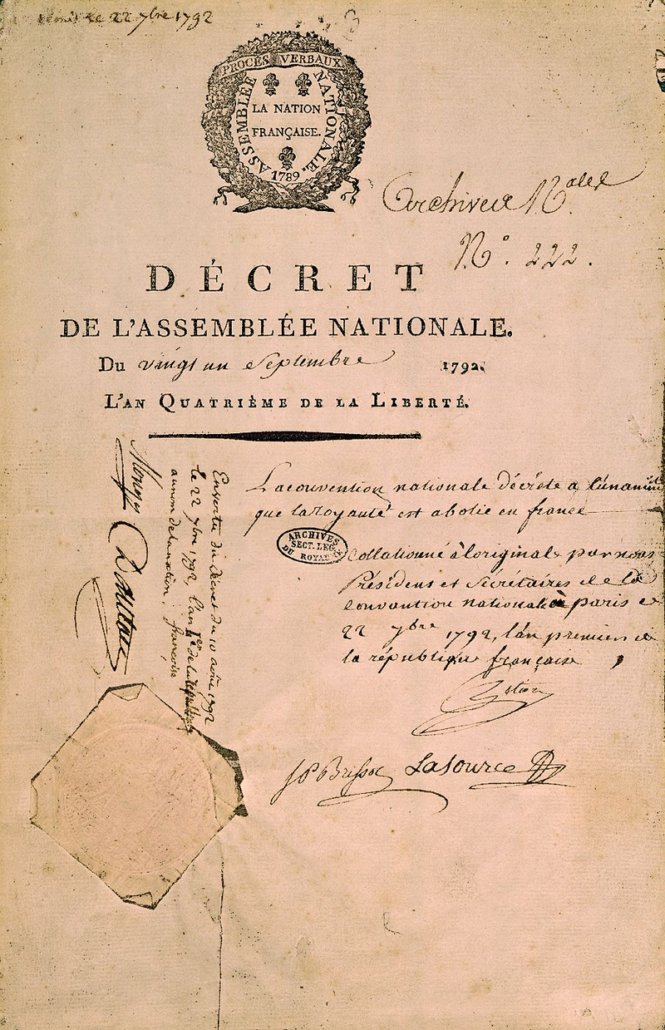 le 22 7bre 1792
PROCÈS VERBAUX
ASSEMBLÉE NATIONALE.
LA NATION
FRANÇAISE.
1789.
Archives Nales
No. 222.
DÉCRET
DE L'ASSEMBLÉE NATIONALE.
Du vingt un Septembre 1792.
L'AN QUATRIÈME DE LA LIBERTÉ.
La convention nationale décrète a l'unanimité
que la royauté est abolie en france
ARCHIVES
SECT. LEG.
DU ROYAU
Collationné à l'original par nous
Président et Secrétaires de la
Convention nationale à paris le
22 7bre 1792, l'an premier de
la république françoise
J P Brissot Lasource
En vertu du décret du 10 août 1792
le 22 7bre 1792 l'an 1er de la république
au nom de la nation. françoise
Monge Danton